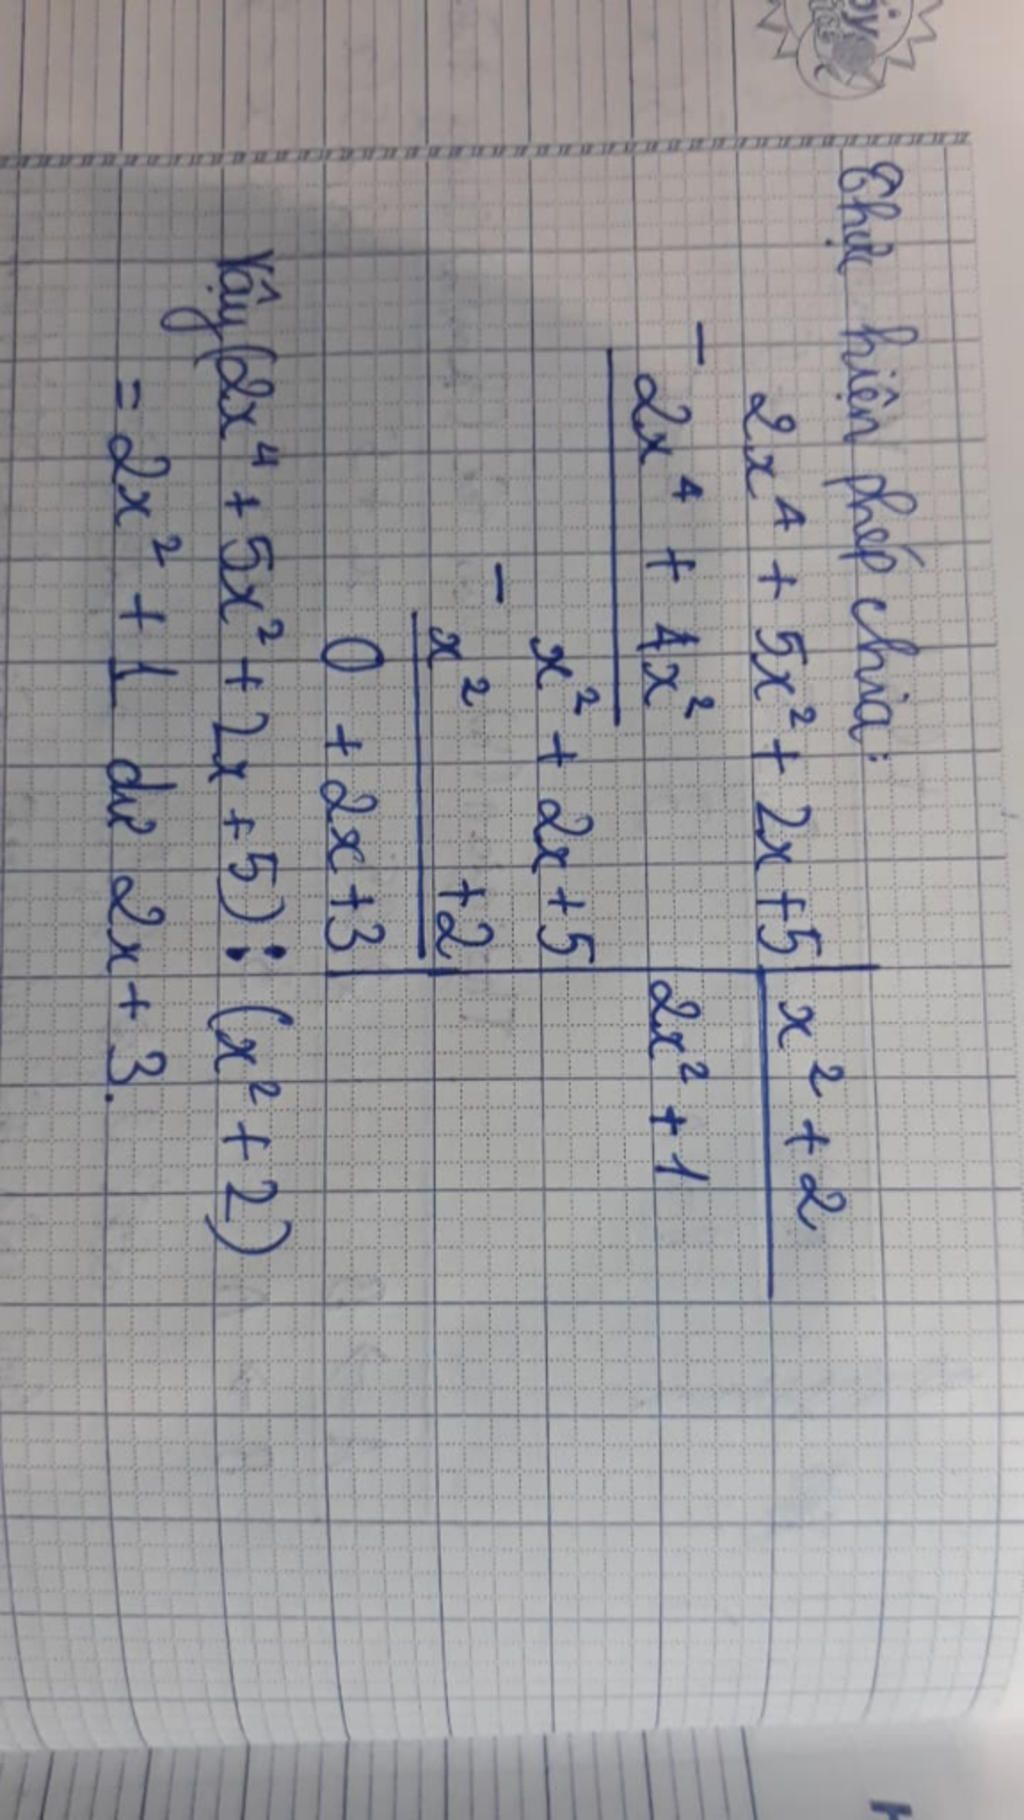 Thực hiện phép chia:
2x⁴ + 5x² + 2x + 5 | x² + 2
−
2x⁴ + 4x² | 2x² + 1
x² + 2x + 5
−
x² + 2
0 + 2x + 3
Vậy (2x⁴ + 5x² + 2x + 5) : (x² + 2)
= 2x² + 1 dư 2x + 3.